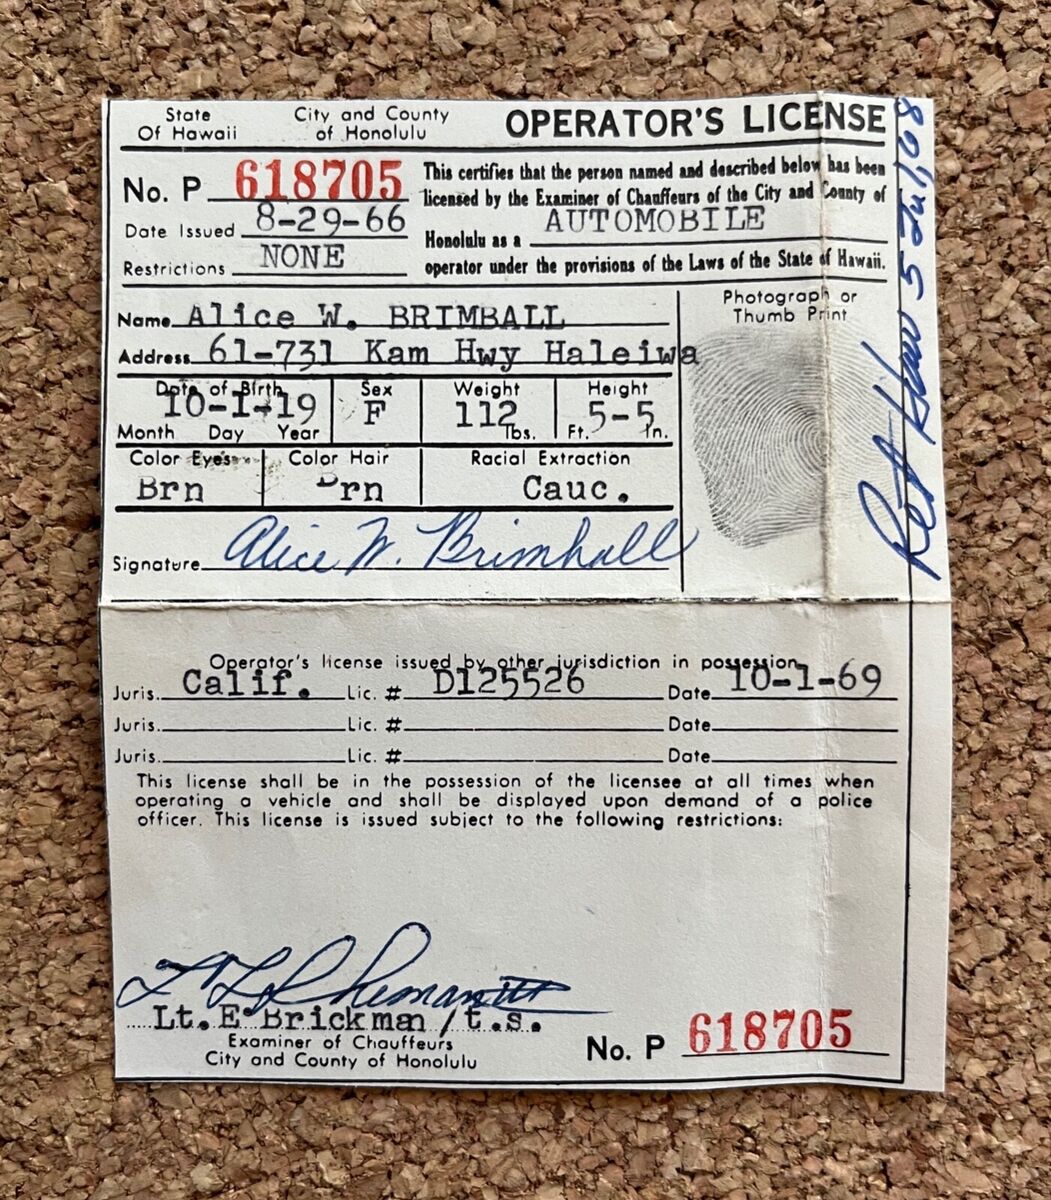 State
Of Hawaii
City and County
of Honolulu
OPERATOR'S LICENSE
No. P 618705
Date Issued 8-29-66
Restrictions NONE
This certifies that the person named and described below has been
licensed by the Examiner of Chauffeurs of the City and County of
Honolulu as a AUTOMOBILE
operator under the provisions of the Laws of the State of Hawaii.
Name Alice W. BRIMBALL
Address 61-731 Kam Hwy Haleiwa
Photograph or
Thumb Print
Date of Birth 10-1-19
Month Day Year
Sex
F
Weight
112
lbs.
Height
5-5
Ft. In.
Color Eyes
Brn
Color Hair
Brn
Racial Extraction
Cauc.
Signature Alice W. Brimhall
Ret Haw 5 Jul, 68
Operator's license issued by other jurisdiction in possession
Juris. Calif. Lic. # D125526 Date 10-1-69
Juris. Lic. # Date
Juris. Lic. # Date
This license shall be in the possession of the licensee at all times when
operating a vehicle and shall be displayed upon demand of a police
officer. This license is issued subject to the following restrictions:
Lt. E Brickman/t.s.
Examiner of Chauffeurs
City and County of Honolulu
No. P 618705